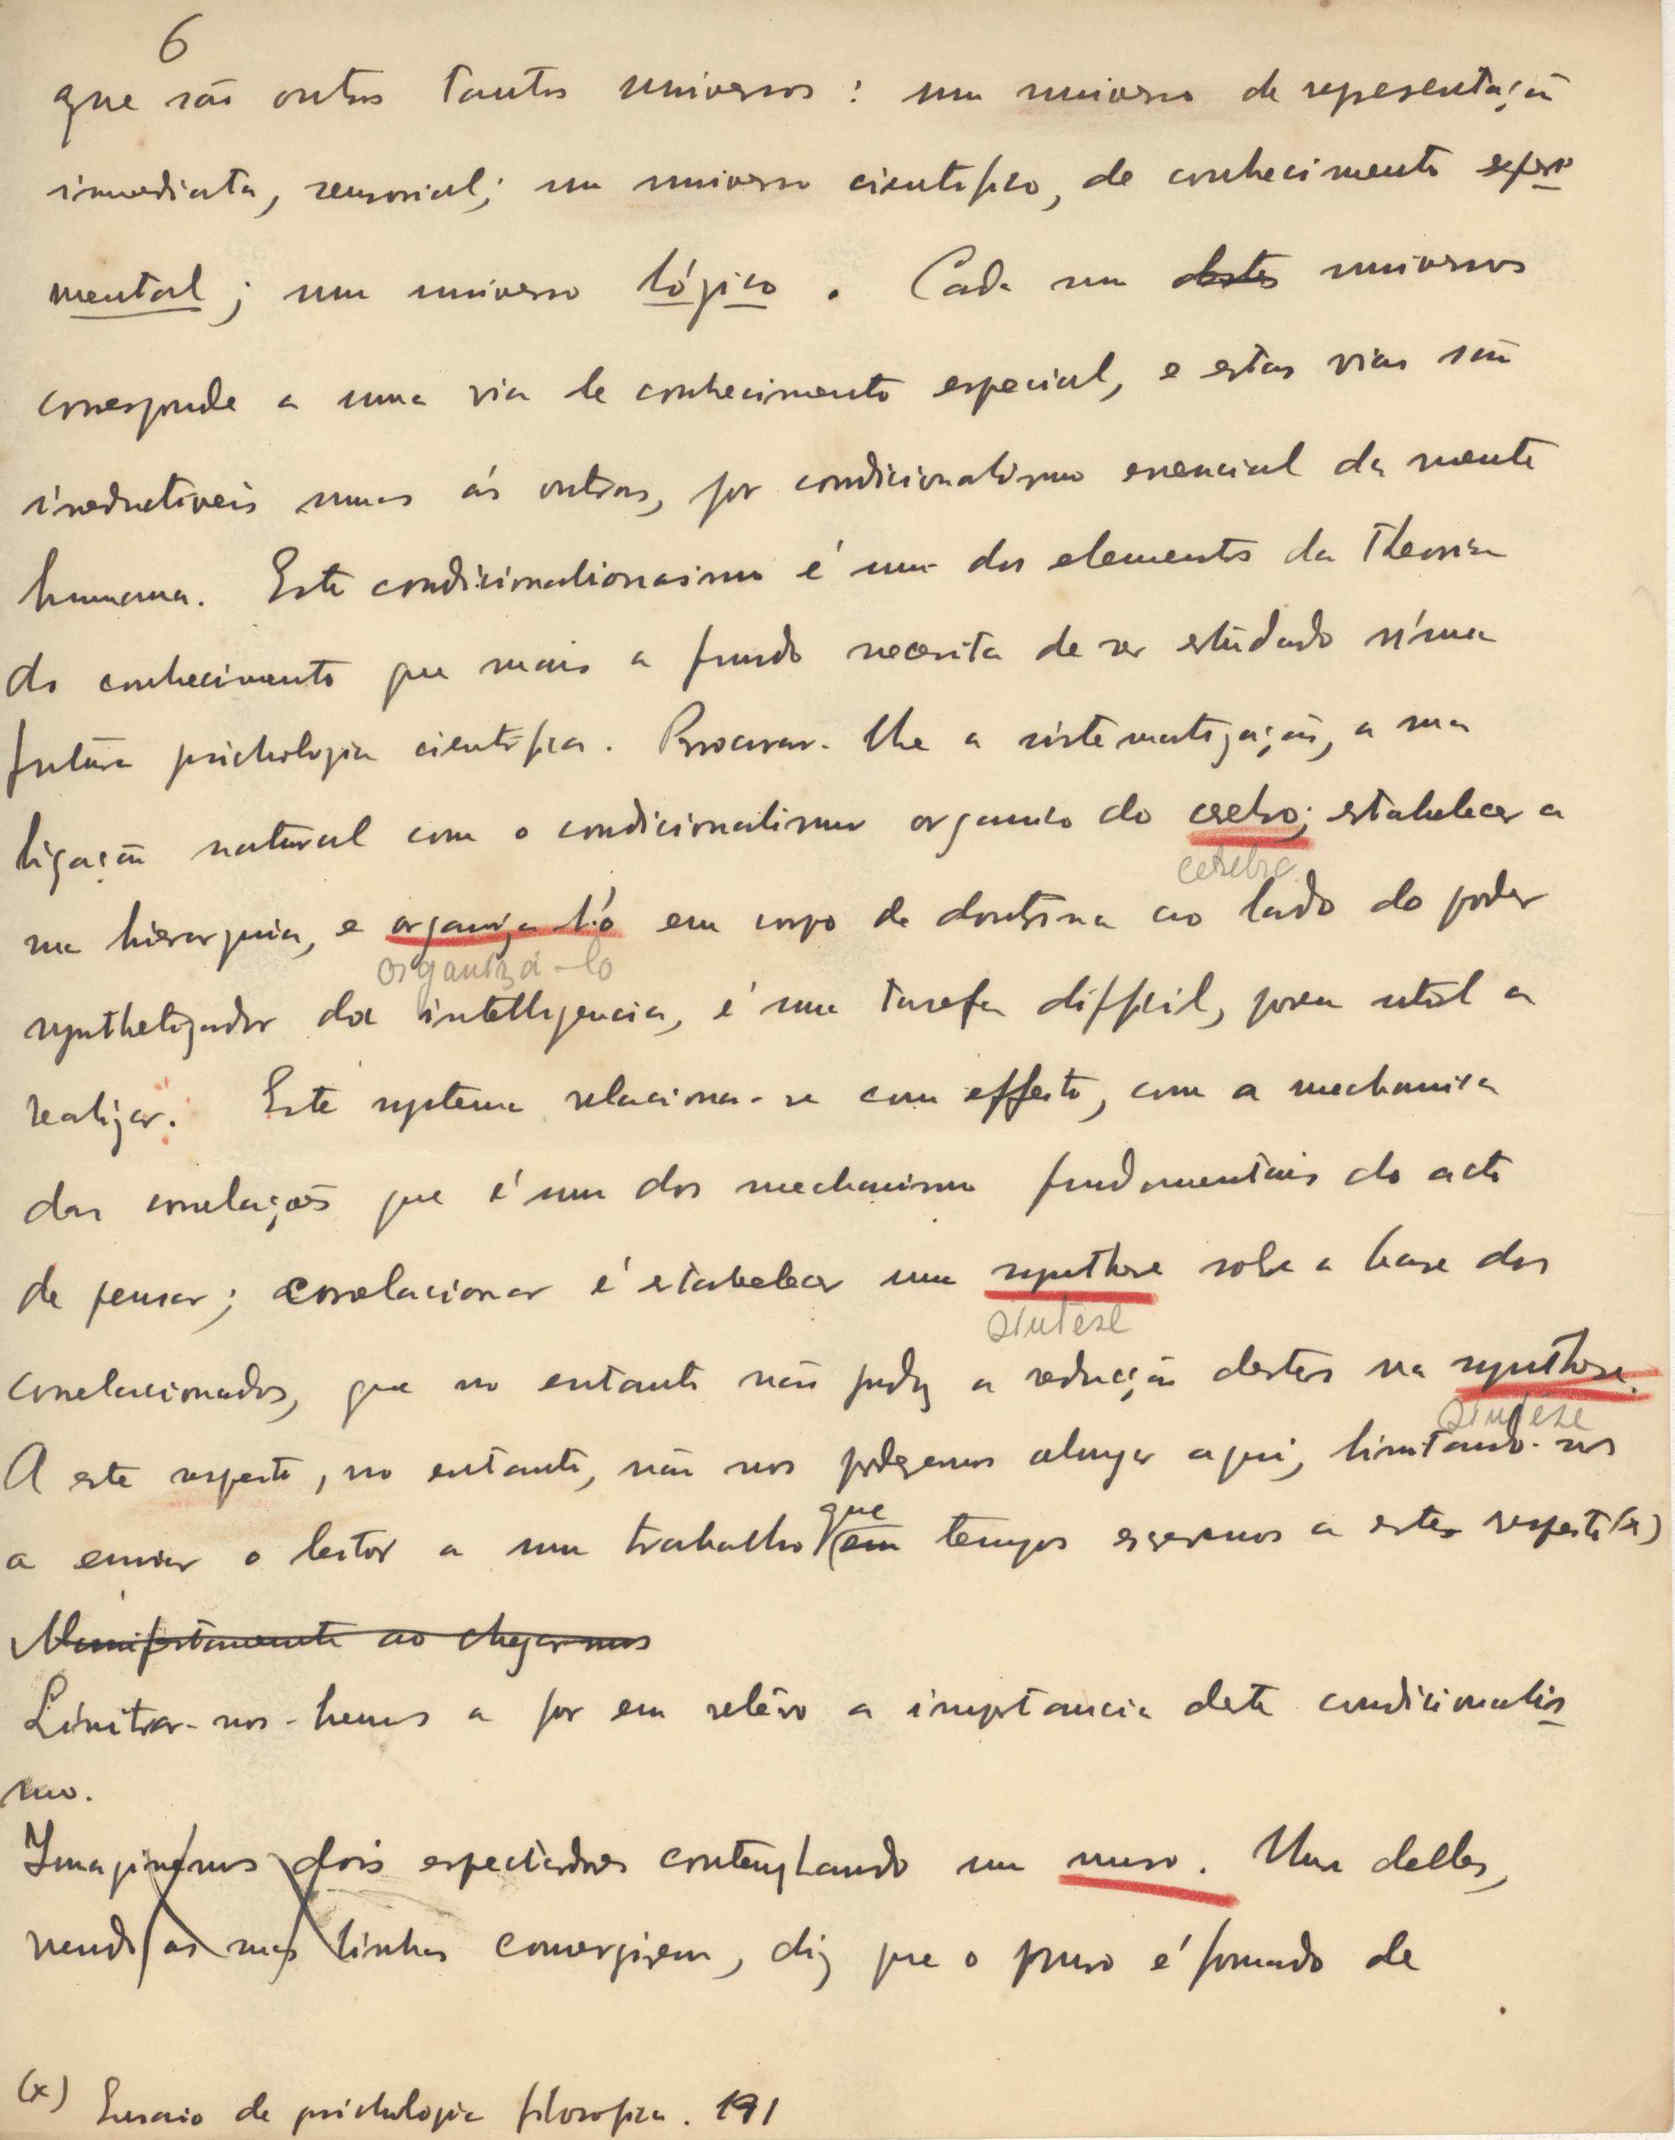 6
que são outros tantos universos : um universo de representação
immediata, sensorial; um universo cientifico, de conhecimento experi
mental ; um universo lógico . Cada um destes universos
corresponde a uma via de conhecimento especial, e estas vias são
irreductiveis umas ás outras, por condicionalismo essencial da mente
humana. Este condicionalionasimo é um dos elementos da Theoria
do conhecimento que mais a fundo necessita de ser estudado n'uma
futura psichologia cientifica. Procurar-lhe a sistematização, a sua
ligação natural com o condicionalismo organico do cerebro; estabelecer a
cerebro
sua hierarquia, e organiza-l'o em corpo de doutrina ao lado do poder
organizá-lo
synthetizador da intelligencia, é uma tarefa difficil, porem util a
realizar. Este systema relaciona-se com effeito, com a mechanica
das correlações que é um dos mechanismo fundamentais do acto
de pensar; correlacionar é estabelecer uma synthese sobre a base dos
síntese
correlacionados, que no entanto não produz a redução destes na synthese.
síntese
A este respeito, no entanto, não nos podemos alongar aqui, limitando-nos
a enviar o leitor a um trabalho que em tempos escrevemos a este respeito (x)
Manifestamente ao chegarmos
Limitar-nos-hemos a por em relêvo a importancia deste condicionalis
mo.
Imaginémos dois espectadores contemplando um muro. Um delles,
vendo as suas linhas convergirem, diz que o muro é formado de
(x) Ensaio de psichologia filosofica. 191